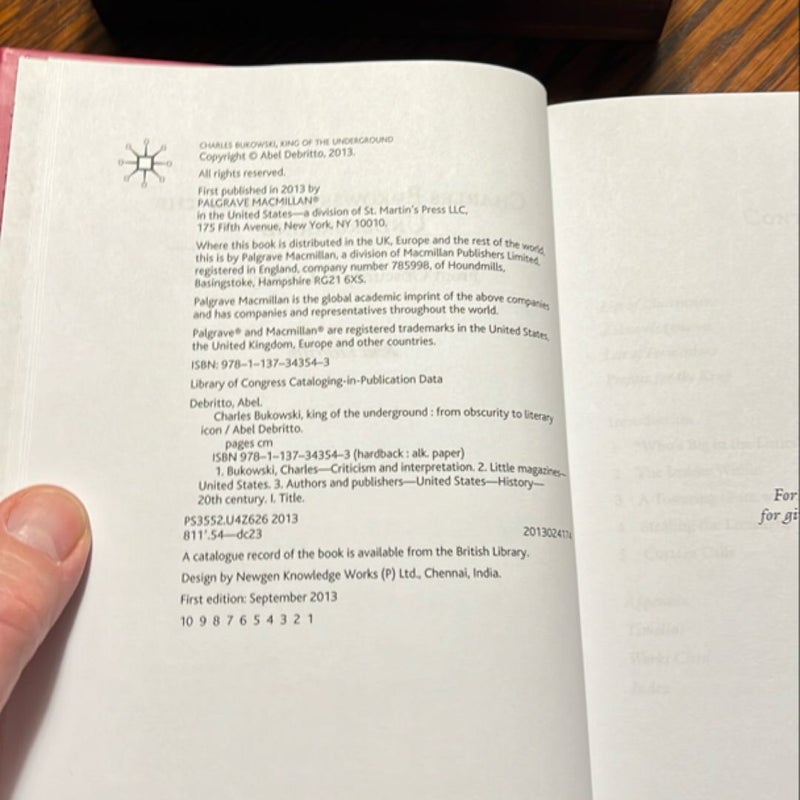 CHARLES BUKOWSKI, KING OF THE UNDERGROUND
Copyright © Abel Debritto, 2013.
All rights reserved.
First published in 2013 by
PALGRAVE MACMILLAN®
in the United States—a division of St. Martin's Press LLC,
175 Fifth Avenue, New York, NY 10010.
Where this book is distributed in the UK, Europe and the rest of the world,
this is by Palgrave Macmillan, a division of Macmillan Publishers Limited,
registered in England, company number 785998, of Houndmills,
Basingstoke, Hampshire RG21 6XS.
Palgrave Macmillan is the global academic imprint of the above companies
and has companies and representatives throughout the world.
Palgrave® and Macmillan® are registered trademarks in the United States,
the United Kingdom, Europe and other countries.
ISBN: 978–1–137–34354–3
Library of Congress Cataloging-in-Publication Data
Debritto, Abel.
Charles Bukowski, king of the underground : from obscurity to literary
icon / Abel Debritto.
pages cm
ISBN 978–1–137–34354–3 (hardback : alk. paper)
1. Bukowski, Charles—Criticism and interpretation. 2. Little magazines—
United States. 3. Authors and publishers—United States—History—
20th century. I. Title.
PS3552.U4Z626 2013
811'.54—dc23 2013024174
A catalogue record of the book is available from the British Library.
Design by Newgen Knowledge Works (P) Ltd., Chennai, India.
First edition: September 2013
10 9 8 7 6 5 4 3 2 1
For
for gi